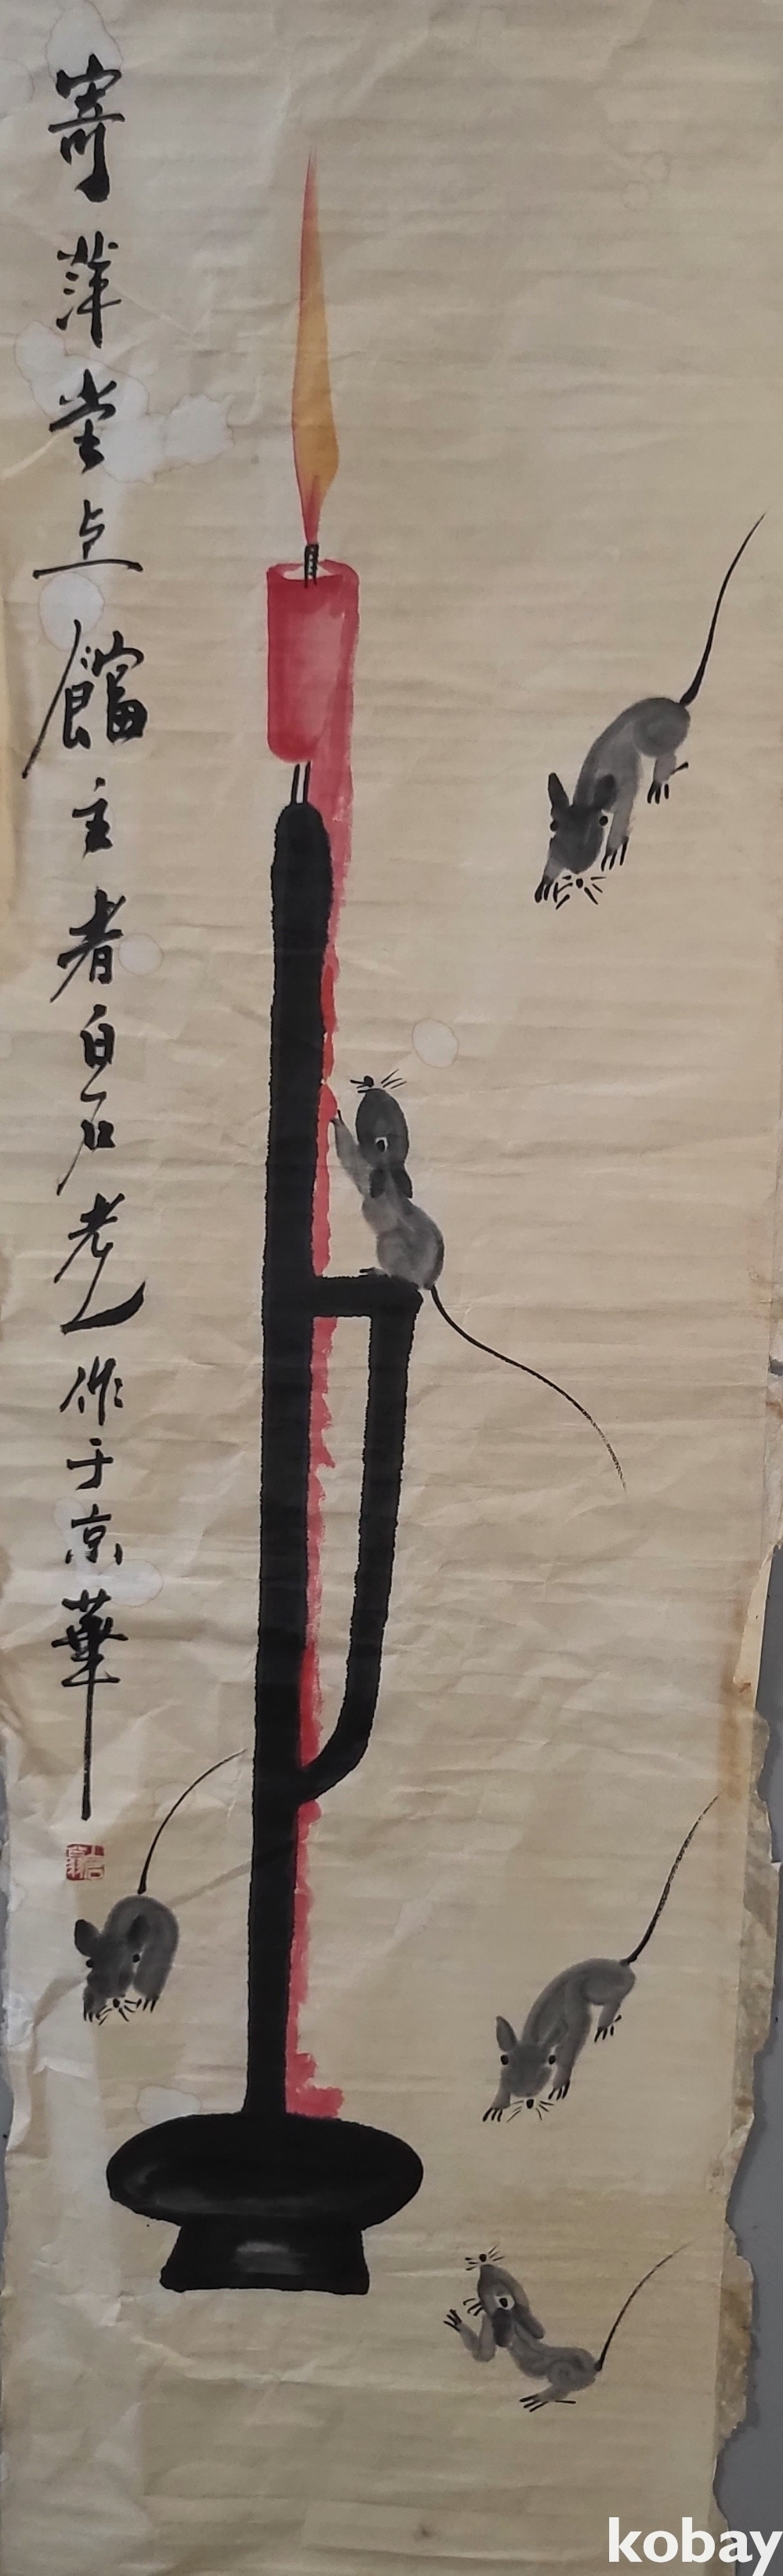 寄萍堂上饀主者白石老人作于京華
kobay